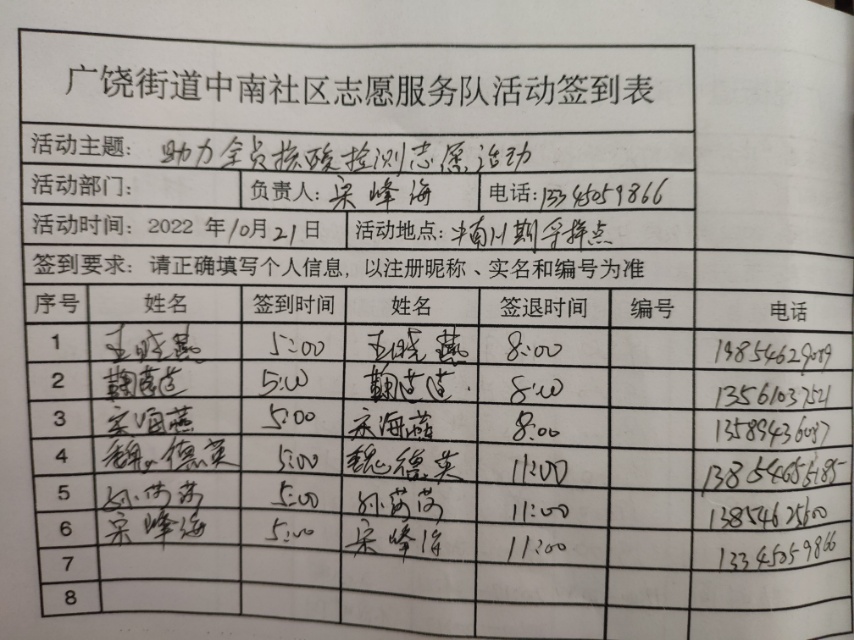 广饶街道中南社区志愿服务队活动签到表
活动主题： 助力全员核酸检测志愿活动
活动部门： 负责人：宋峰海 电话：13345059866
活动时间：2022 年10月21日 活动地点：中南 期采样点
签到要求：请正确填写个人信息，以注册昵称、实名和编号为准
序号 姓名 签到时间 姓名 签退时间 编号 电话
1 王晓燕 5:00 王晓燕 8:00
2 5:00 8:00 13561037521
3 宋海燕 5:00 宋海燕 8:00 13589436087
4 魏德英 5:00 魏德英 11:00 13854655185
5 孙芳芳 5:00 孙芳芳 11:00 13854625600
6 宋峰海 5:00 宋峰海 11:00 13345059866
7
8